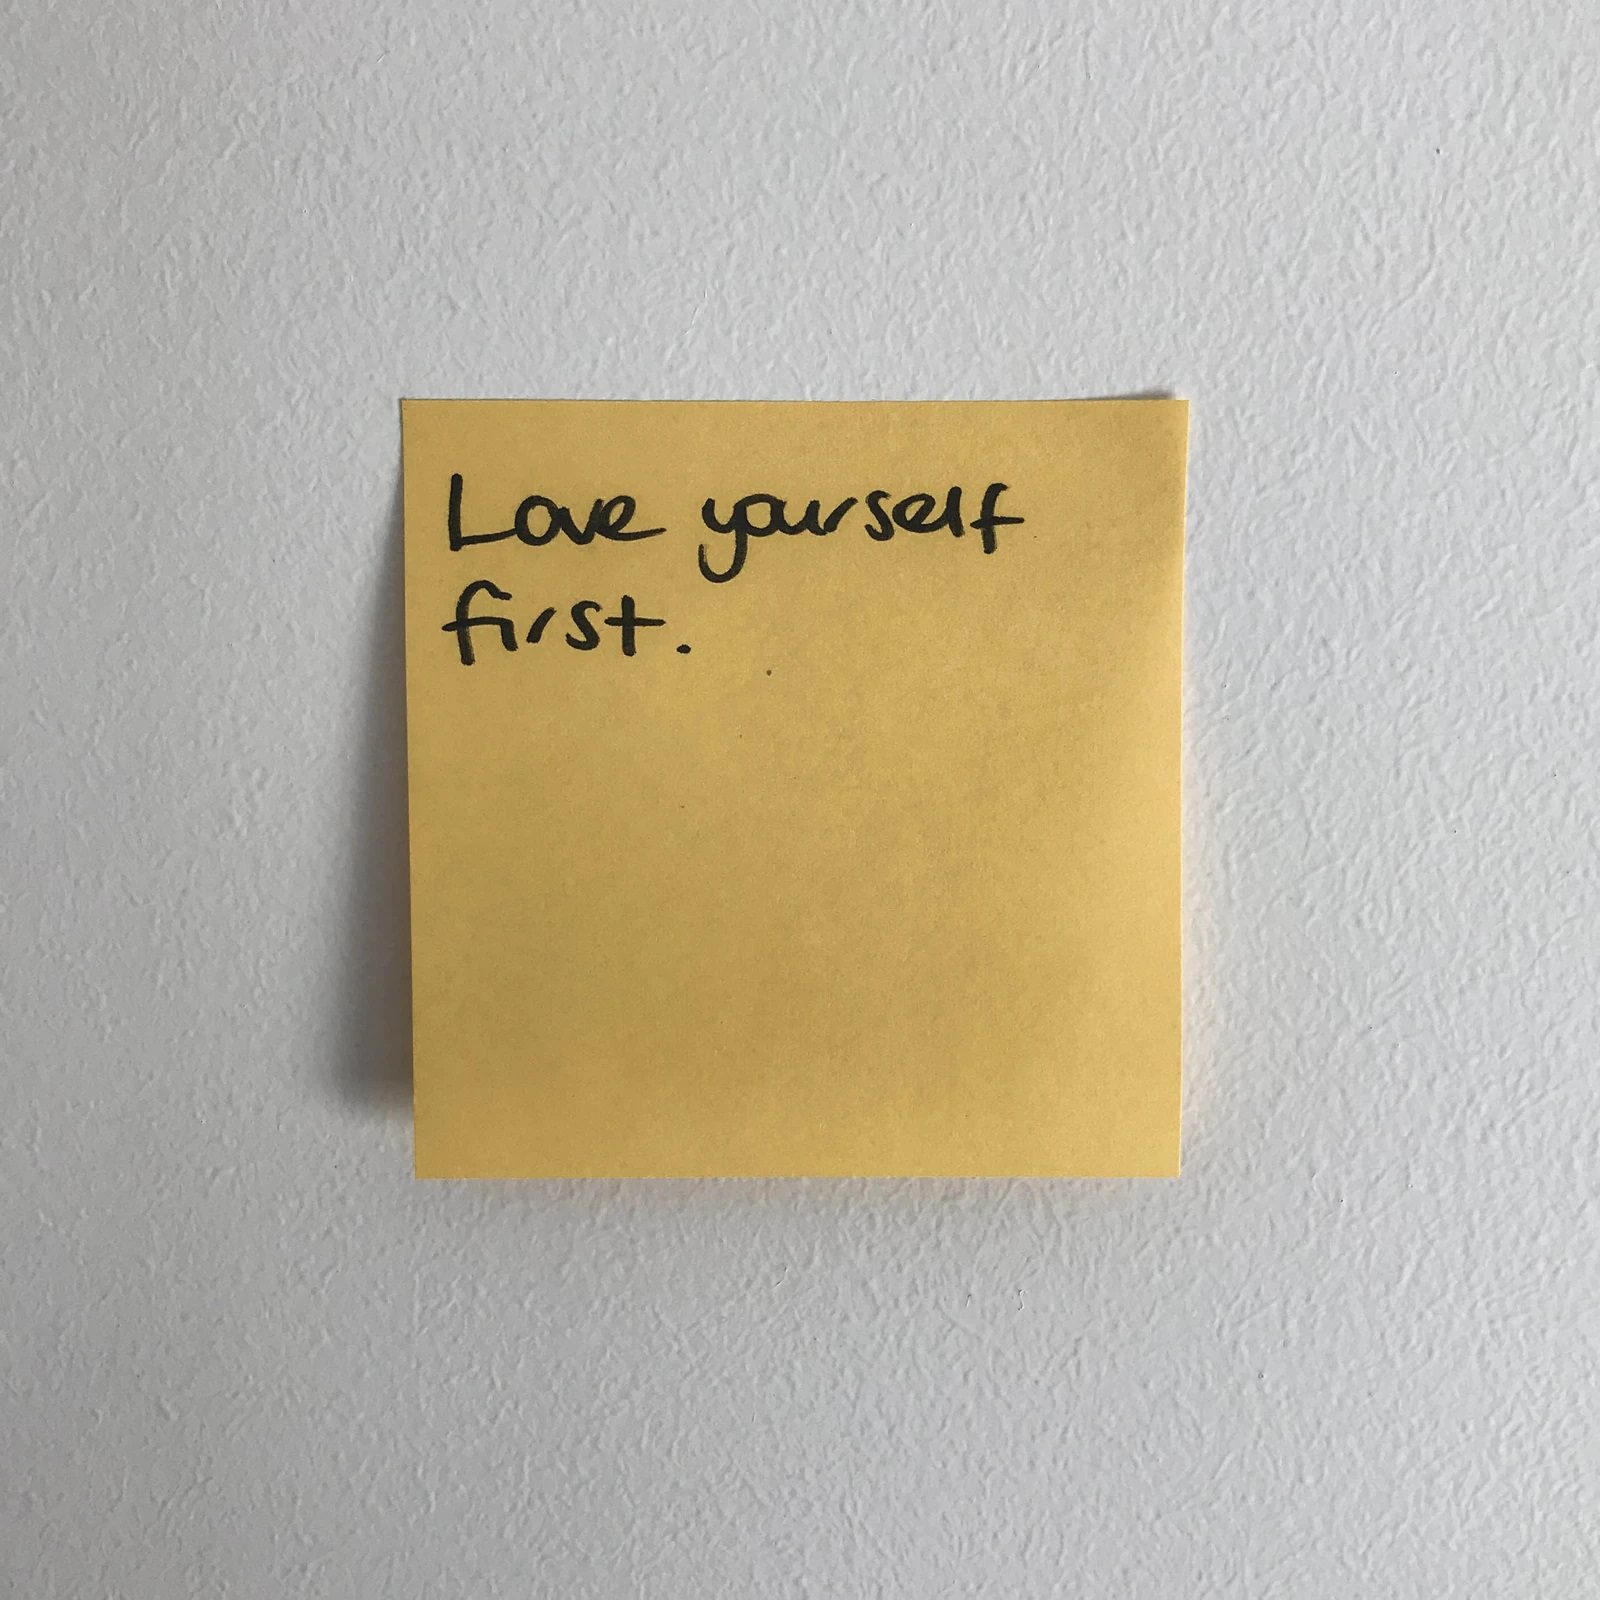 Love yourself
first.